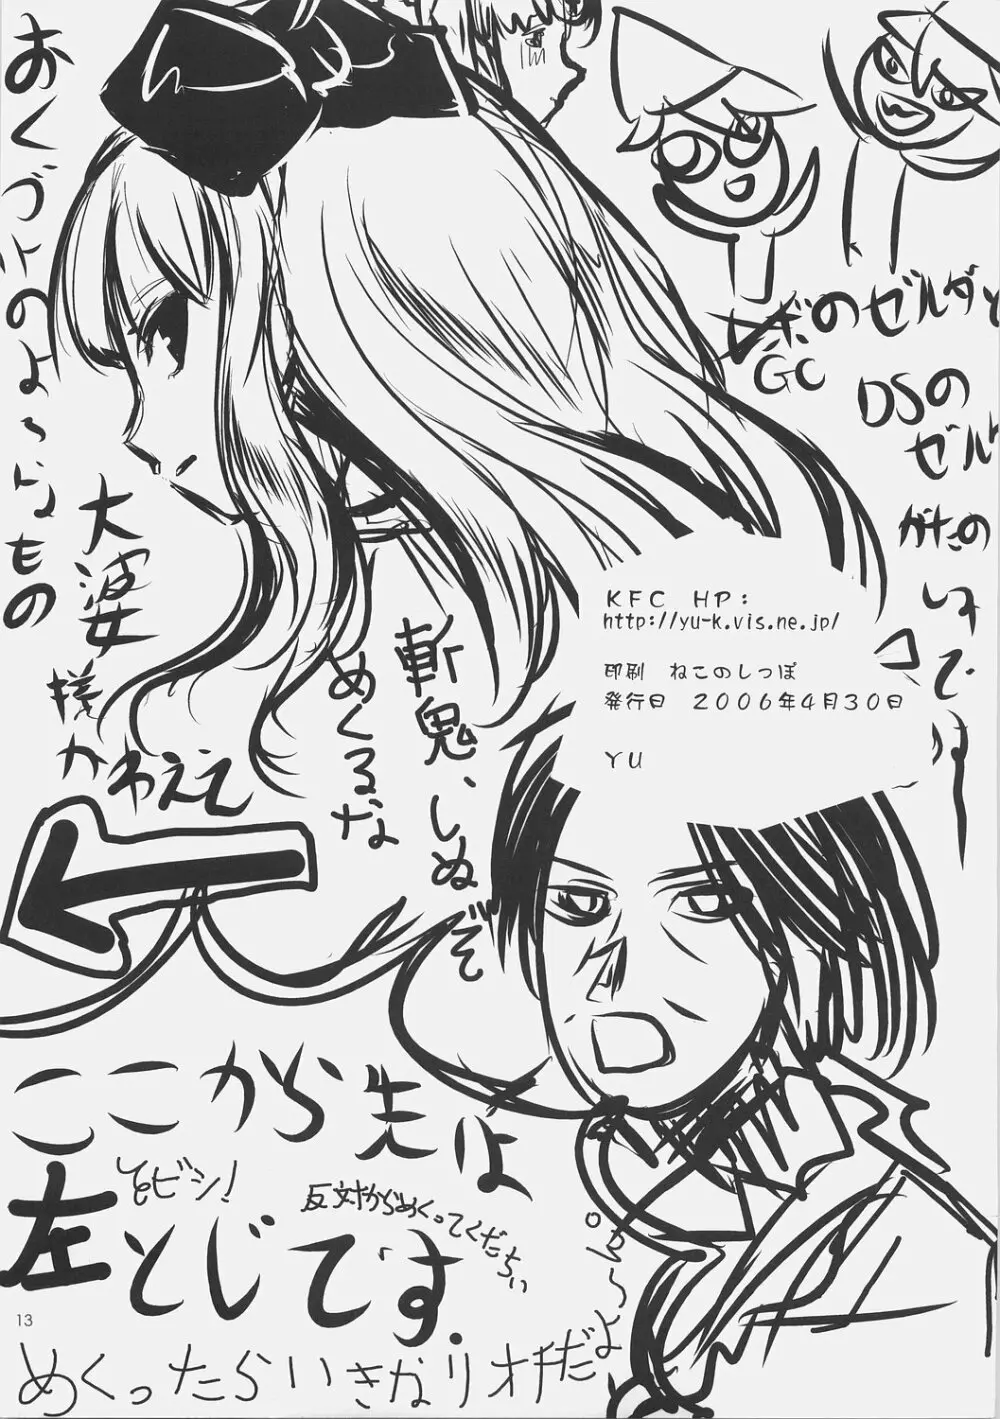 おくづけのよーなもの
ロボのゼルダと
GC
DSの
ゼル
がたの
いすです
大婆
様
かわええ
斬鬼、しぬぞ
めくるなよ
KFC HP:
http://yu-k.vis.ne.jp/
印刷 ねこのしっぽ
発行日 2006年4月30日
YU
ここから先は
左とじです.
とじビシ!
反対からめくってくだちい
めくったらいきなりオチだよ
13